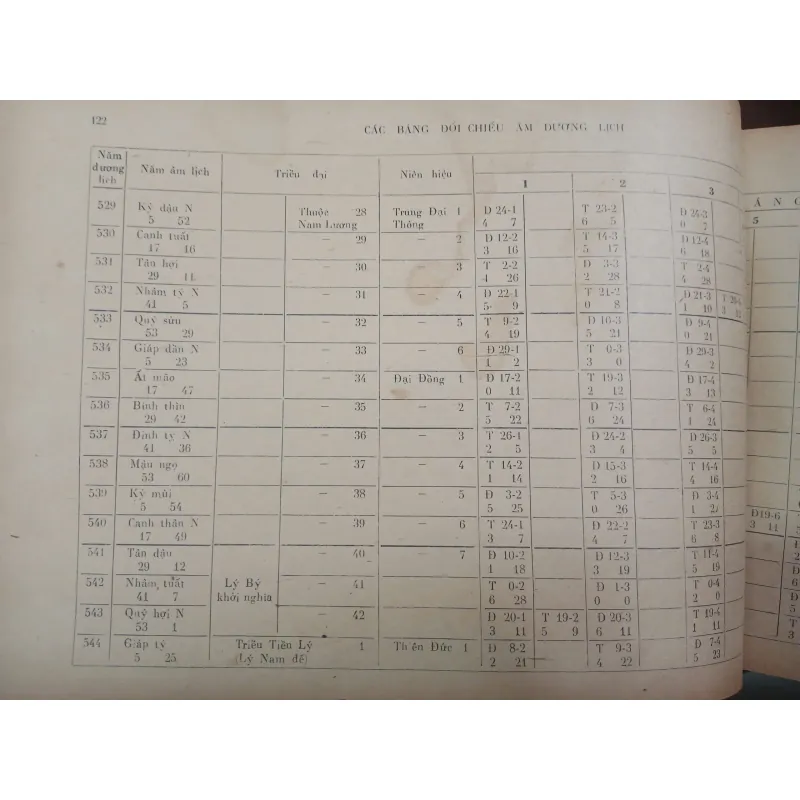 122
CÁC BẢNG ĐỐI CHIẾU ÂM DƯƠNG LỊCH
Năm dương lịch Năm âm lịch Triều đại Niên hiệu 1 2 3
529 Kỷ dậu N Thuộc 28 Trung Đại 1 Đ 24-1 T 23-2 Đ 24-3
5 52 Nam Lương Thông 4 7 6 5 0 7
530 Canh tuất — 29 — 2 Đ 12-2 T 14-3 Đ 12-4
17 46 3 16 5 17 6 18
531 Tân hợi — 30 — 3 T 2-2 Đ 3-3 T 2-4
29 11 4 26 2 28 4 28
532 Nhâm tý N — 31 — 4 Đ 22-1 T 21-2 Đ 21-3
41 5 5 9 0 8 1 10
533 Quý sửu — 32 — 5 T 9-2 Đ 10-3 Đ 9-4
53 29 4 19 5 21 0 21
534 Giáp dần N — 33 — 6 Đ 29-1 T 0-3 Đ 29-3
5 23 1 2 3 0 4 2
535 Ất mão — 34 Đại Đồng 1 Đ 17-2 T 19-3 Đ 17-4
17 47 0 11 2 12 3 13
536 Bính thìn — 35 — 2 T 7-2 Đ 7-3 T 6-4
29 42 5 22 6 24 1 24
537 Đinh tỵ N — 36 — 3 T 26-1 Đ 24-2 Đ 26-3
41 36 2 5 3 4 5 5
538 Mậu ngọ — 37 — 4 T 14-2 Đ 15-3 T 14-4
53 60 1 14 2 16 4 16
539 Kỷ mùi — 38 — 5 Đ 3-2 T 5-3 Đ 3-4
5 54 5 25 0 26 1
540 Canh thân N — 39 — 6 T 24-1 Đ 22-2 T 23-3
17 49 3 7 4 7 6 8
541 Tân dậu — 40 — 7 Đ 10-2 Đ 12-3 T 11-4
29 12 1 18 3 19 5 19
542 Nhâm tuất Lý Bý — 41 T 0-2 Đ 1-3 T 0-4
41 7 khởi nghĩa 6 28 0 0 2 0
543 Quý hợi N — 42 Đ 20-1 T 19-2 Đ 20-3 T 19-4
53 1 3 11 5 9 6 11 1 11
544 Giáp tý Triều Tiền Lý 1 Thiên Đức 1 Đ 8-2 T 9-3 Đ 7-4
5 25 (Lý Nam đế) 2 21 4 22 5 23
5
Đ19-6
3 11